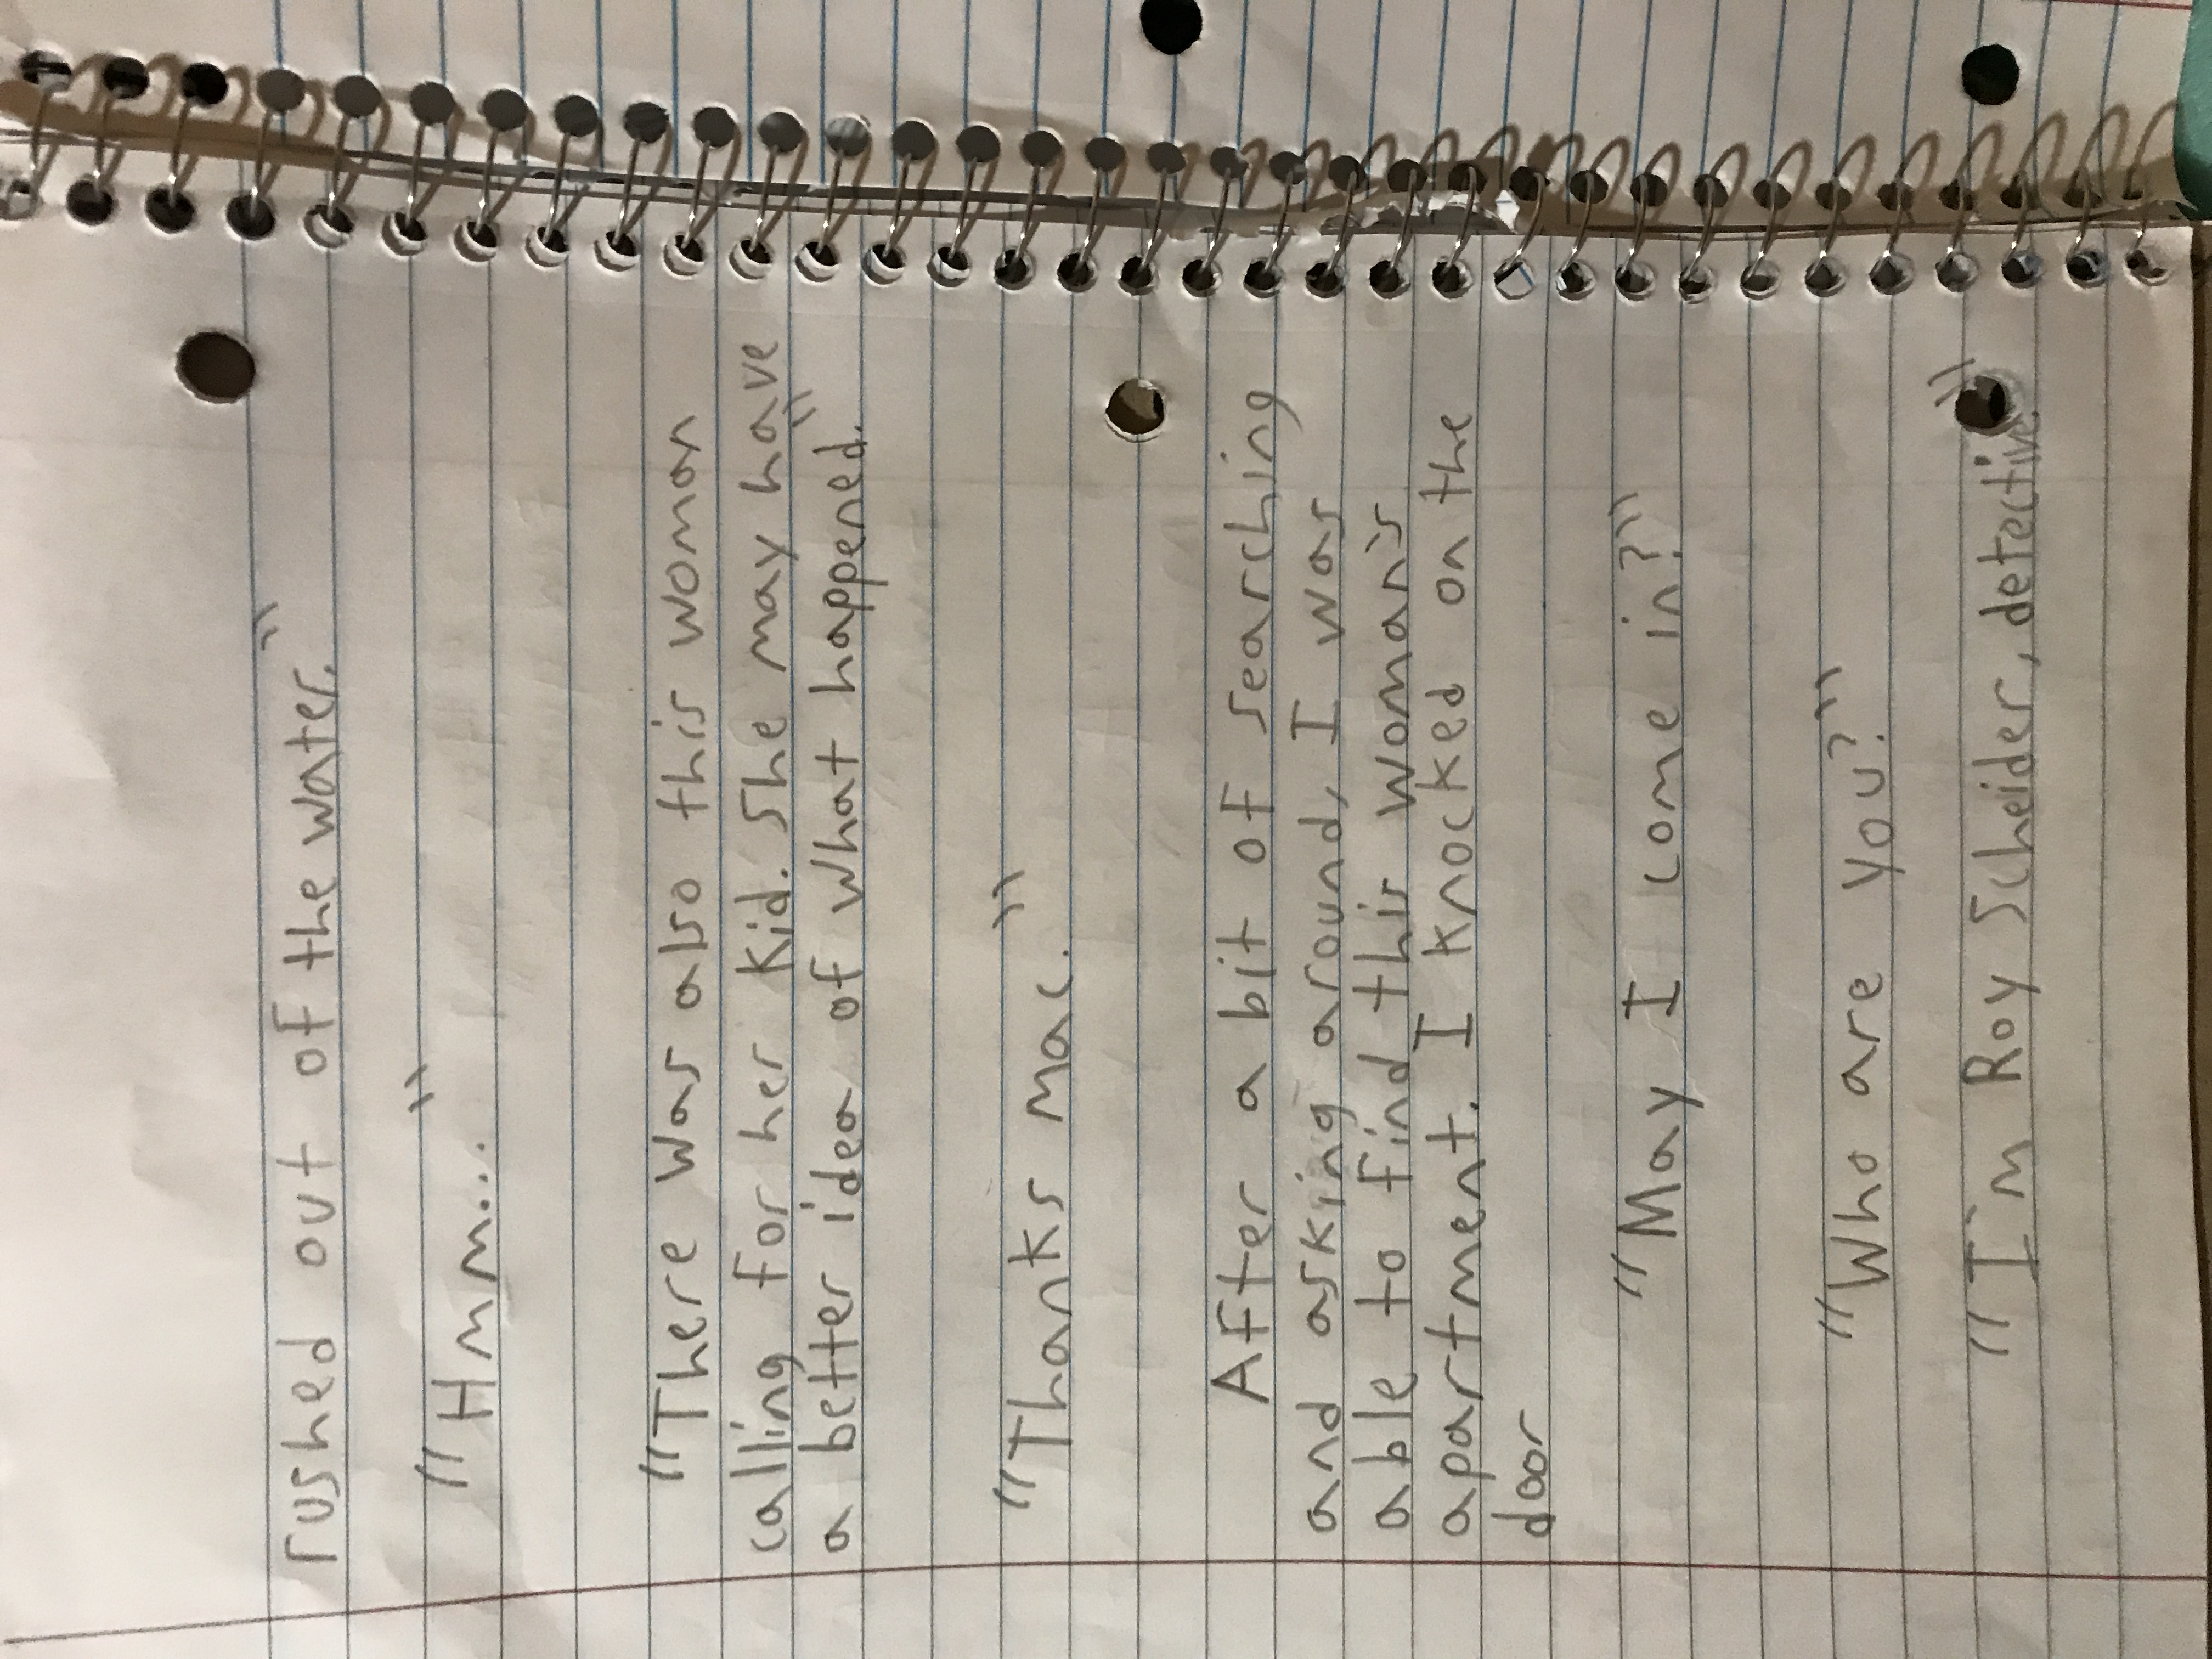 rushed out of the water."
"Hmm..."
"There was also this woman
calling for her kid. She may have
a better idea of what happened."
"Thanks Mac."
After a bit of searching
and asking around, I was
able to find this woman's
apartment. I knocked on the
door
"May I come in?"
"Who are you?"
"I'm Roy Scheider, detective."